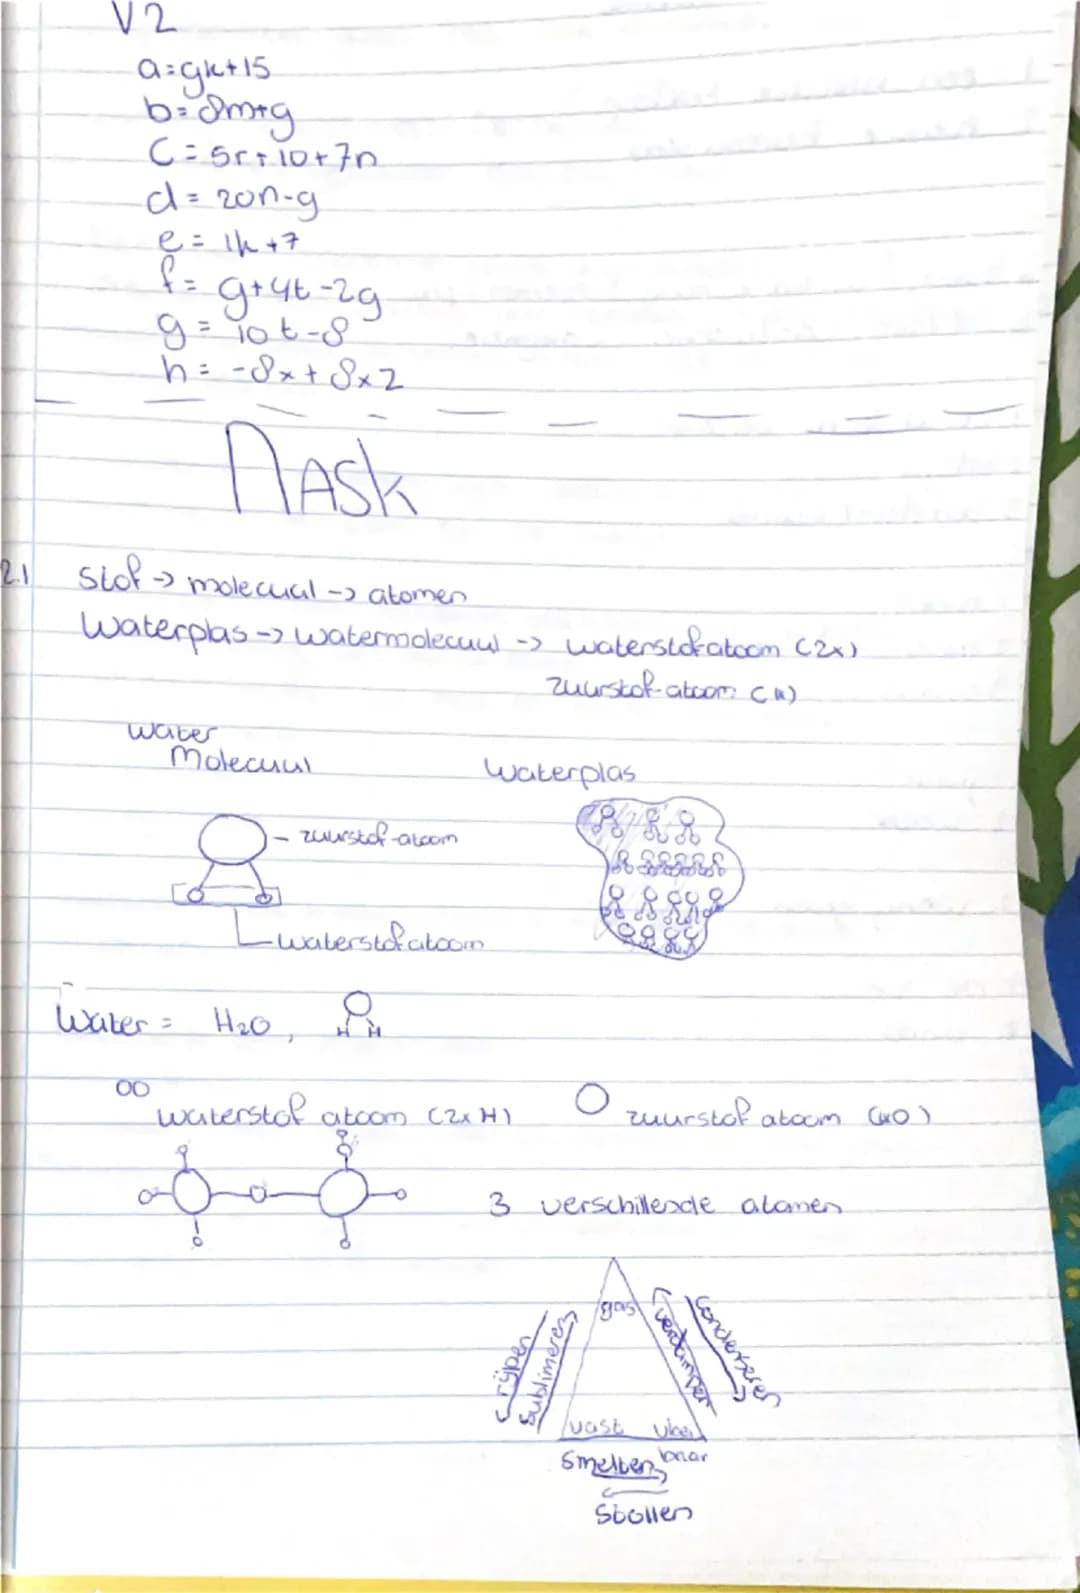 V2
a=gk+15
b=8m+g
C=5r+10+7n
d=20n-g
e=1k+7
f=g+4t-2g
g=10t-8
h=-8x+8x2
NASk
2.1 Stof -> molecuul -> atomen
Waterplas -> watermolecuul -> waterstofatoom (2x)
zuurstof-atoom
Water
Molecuul
Waterplas
- zuurstof-atoom
- waterstofatoom
Water = H2O,
H H
waterstof atoom (2x H)
zuurstof atoom
3 verschillende atomen
gas
rijpen
sublimeren
verdampen
Condenseren
vast vloei
baar
Smelten
Stollen